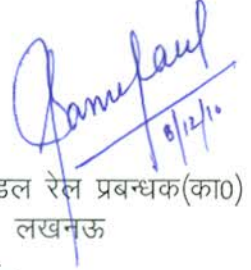 8/12/10
डल रेल प्रबन्धक(का0)
लखनऊ